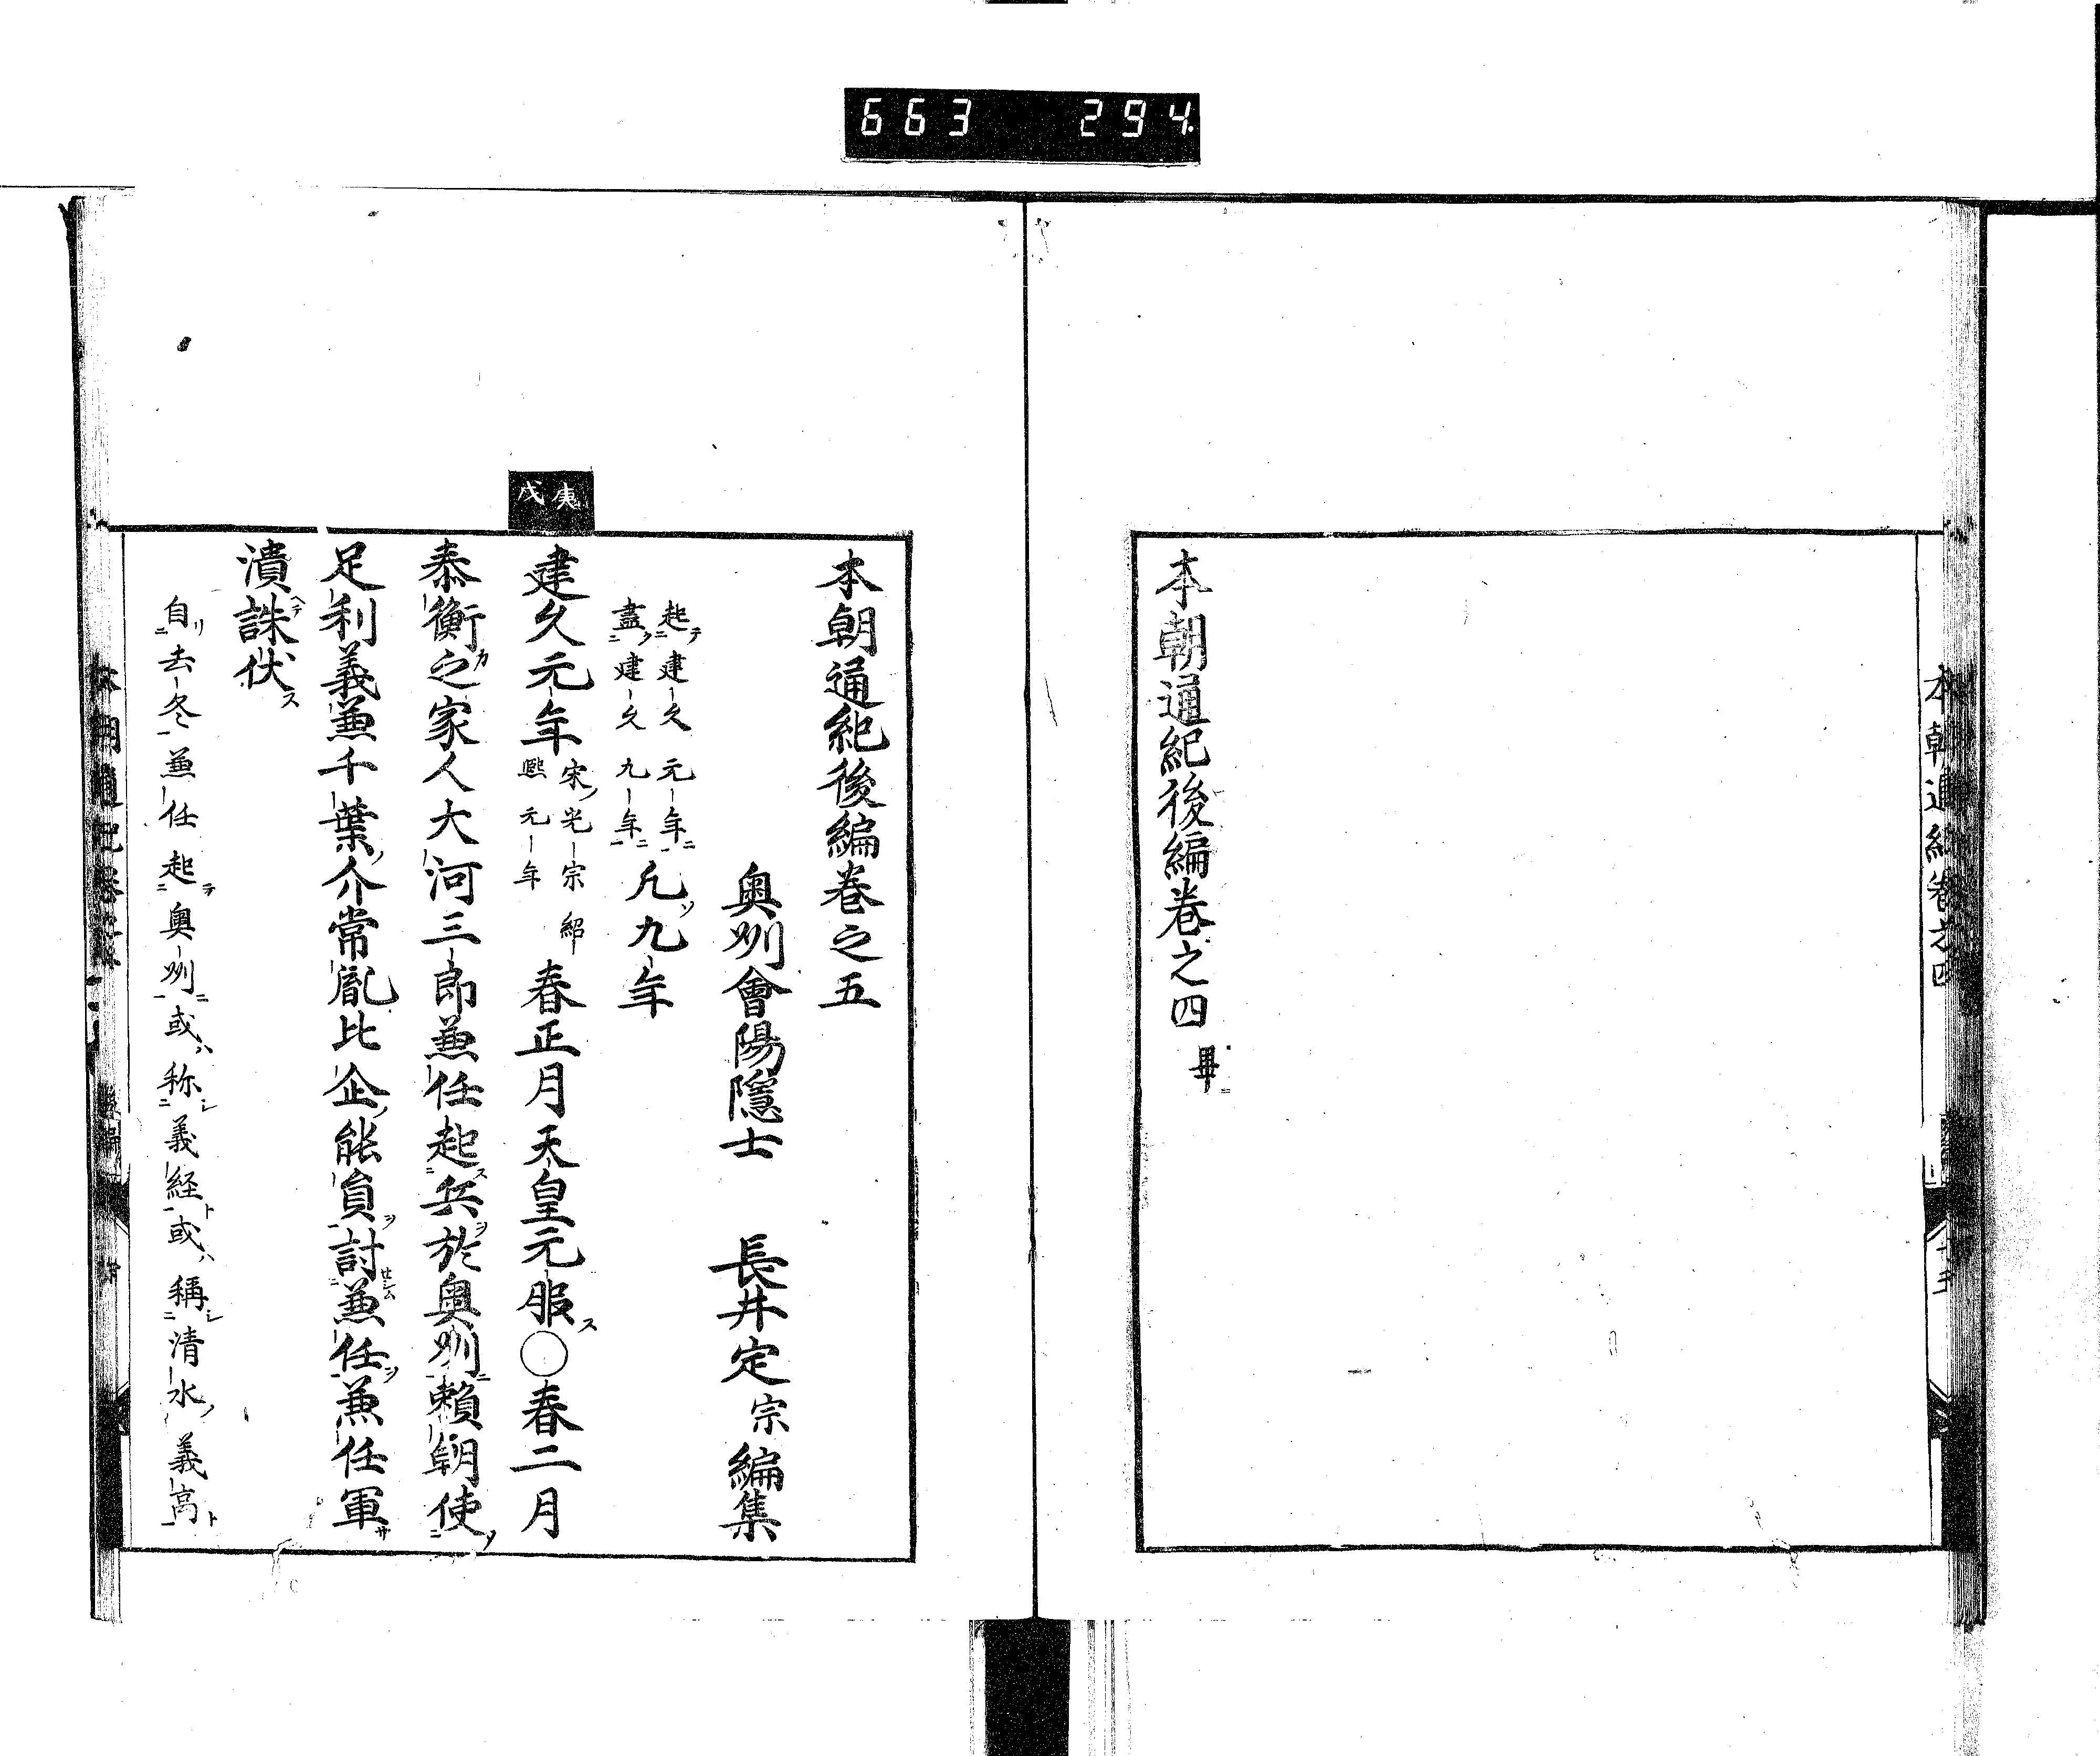 663 294
本朝通紀卷之四
本朝通紀後編卷之四畢
本朝通紀後編卷之五
奥州會陽隱士 長井定宗編集
起建久元年
盡建久九年
凡九年
庚戌
建久元年宋光宗紹熙元年春正月天皇元服○春二月
泰衡之家人大河三郎兼任起兵於奥州頼朝使
足利義兼千葉介常胤比企能員討兼任兼任軍
潰誅伏
自去冬兼任起奥州或称義経或稱清水義高